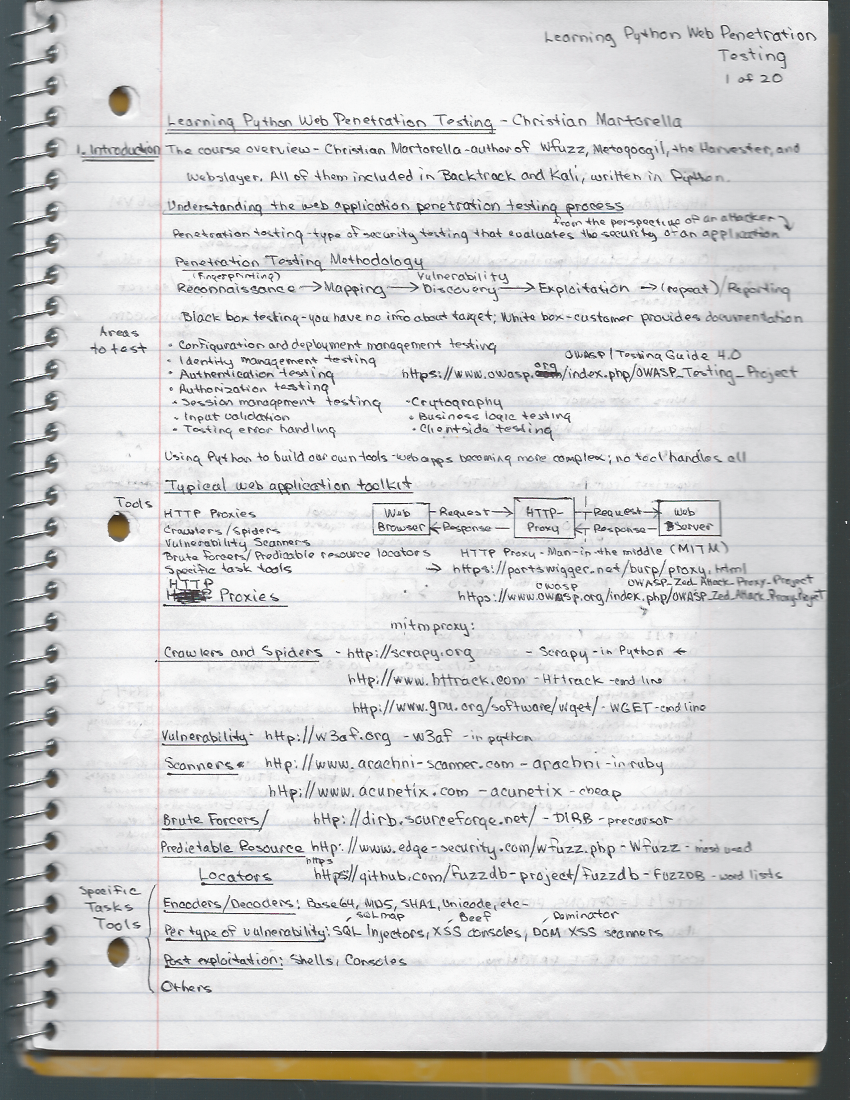 Learning Python Web Penetration
Testing
1 of 20
Learning Python Web Penetration Testing - Christian Martorella
1. Introduction The course overview - Christian Martorella - author of Wfuzz, Metagoogil, the Harvester, and
Webslayer. All of them included in Backtrack and Kali, written in Python.
Understanding the web application penetration testing process
from the perspective of an attacker
Penetration testing - type of security testing that evaluates the security of an application
Penetration Testing Methodology
(Fingerprinting) Vulnerability
Reconnaissance → Mapping → Discovery → Exploitation → (repeat) / Reporting
Black box testing - you have no info about target; White box - customer provides documentation
Areas
to test
• Configuration and deployment management testing
• Identity management testing OWASP / Testing Guide 4.0
• Authentication testing https://www.owasp.org/index.php/OWASP_Testing_Project
• Authorization testing
• Session management testing • Crytography
• Input validation • Business logic testing
• Testing error handling • Clientside testing
Using Python to build our own tools - web apps becoming more complex; no tool handles all
Typical web application toolkit
Tools
HTTP Proxies Web Browser Request → ← Response HTTP-Proxy Request → ← Response Web Server
Crawlers/Spiders
Vulnerability Scanners
Brute Forcers/Predicable resource locators HTTP Proxy - Man-in the middle (MITM)
Specific task tools → https://portswigger.net/burp/proxy.html
HTTP Proxies OWASP OWASP_Zed_Attack_Proxy_Project
https://www.owasp.org/index.php/OWASP_Zed_Attack_Proxy_Project
mitmproxy:
Crawlers and Spiders - http://scrapy.org - Scrapy - in Python ←
http://www.httrack.com - Httrack - cmd line
http://www.gnu.org/software/wget/ - WGET - cmd line
Vulnerability - http://w3af.org - w3af - in python
Scanners • http://www.arachni-scanner.com - arachni - in ruby
http://www.acunetix.com - acunetix - cheap
Brute Forcers/ http://dirb.sourceforge.net/ - DIRB - precursor
Predictable Resource http://www.edge-security.com/wfuzz.php - Wfuzz - most used
https
Locators https://github.com/fuzzdb-project/fuzzdb - FUZZDB - word lists
Specific
Tasks
Tools
Encoders/Decoders: Base64, MD5, SHA1, Unicode, etc-
sqlmap Beef Dominator
Per type of vulnerability: SQL Injectors, XSS consoles, DOM XSS scanners
Post exploitation: Shells, Consoles
Others